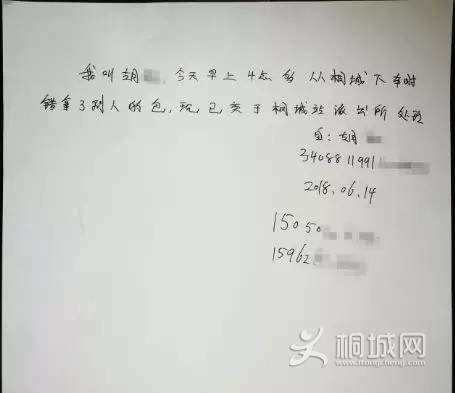 我叫胡 今天早上4点多从桐城下车时
错拿了别人的包,现已交于桐城站派出所处理
自:胡
3408811991
2018.06.14
15050
15962
桐城网
www.itongcheng.com